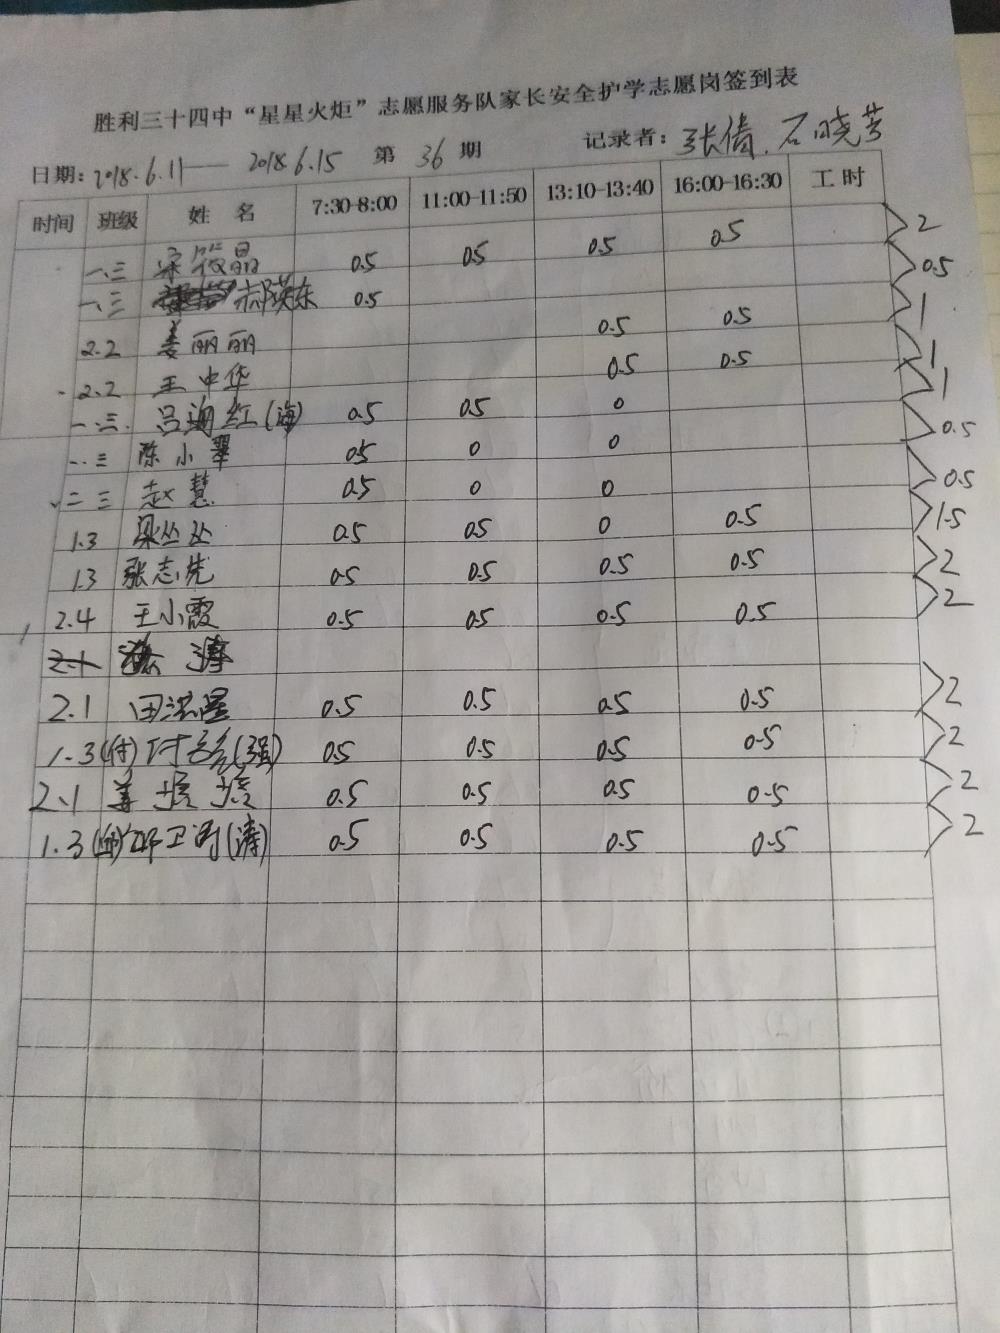 胜利三十四中“星星火炬”志愿服务队家长安全护学志愿岗签到表
日期: 2018.6.11—— 2018.6.15 第 36 期 记录者: 张倩、石晓芳
时间 班级 姓 名 7:30-8:00 11:00-11:50 13:10-13:40 16:00-16:30 工时
一.三 宋筱晶 0.5 0.5 0.5 0.5 2
一.三 郝瑛东 0.5 0.5
2.2 姜丽丽 0.5 0.5 1
2.2 王中华 0.5 0.5 1
一.三. 吕海红(海) 0.5 0.5 0 1
一.三 陈小翠 0.5 0 0 0.5
二三 赵慧 0.5 0 0 0.5
1.3 梁丛丛 0.5 0.5 0 0.5 1.5
1.3 张志先 0.5 0.5 0.5 0.5 2
2.4 王小霞 0.5 0.5 0.5 0.5 2
2.1
2.1 田洪星 0.5 0.5 0.5 0.5 2
1.3(付) 付(强) 0.5 0.5 0.5 0.5 2
2.1 姜 0.5 0.5 0.5 0.5 2
1.3 卫 (涛) 0.5 0.5 0.5 0.5 2